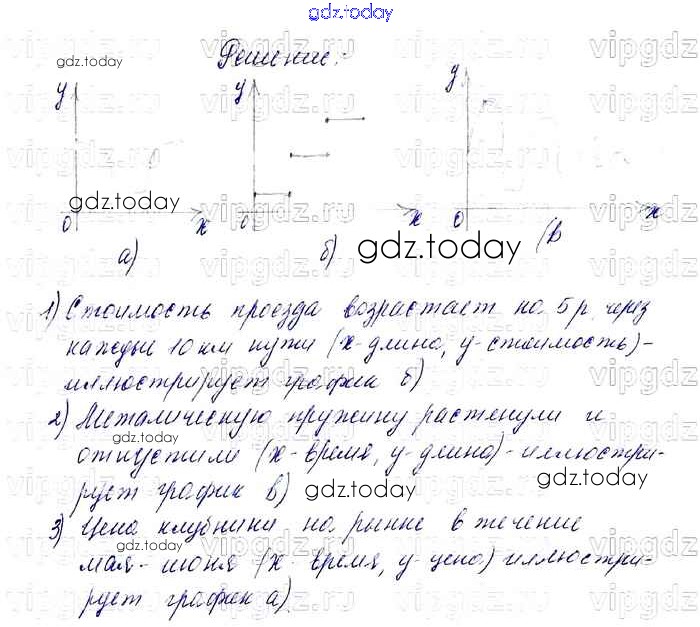 gdz.today
Решение:
gdz.today
у у у
gdz.today
0 х 0 х 0 х
а) б) (в
gdz.today
1) Стоимость проезда возрастает на 5 р. через
каждые 10 км пути (х-длина, у-стоимость)-
иллюстрирует график б)
2) Металическую пружину растенули и
gdz.today
отпустили (х-время, у-длина)-иллюстри-
рует график в)
gdz.today
gdz.today
3) Цена клубники на рынке в течение
gdz.today
мая-июня (х- время, у-цена) иллюстри-
рует график а).